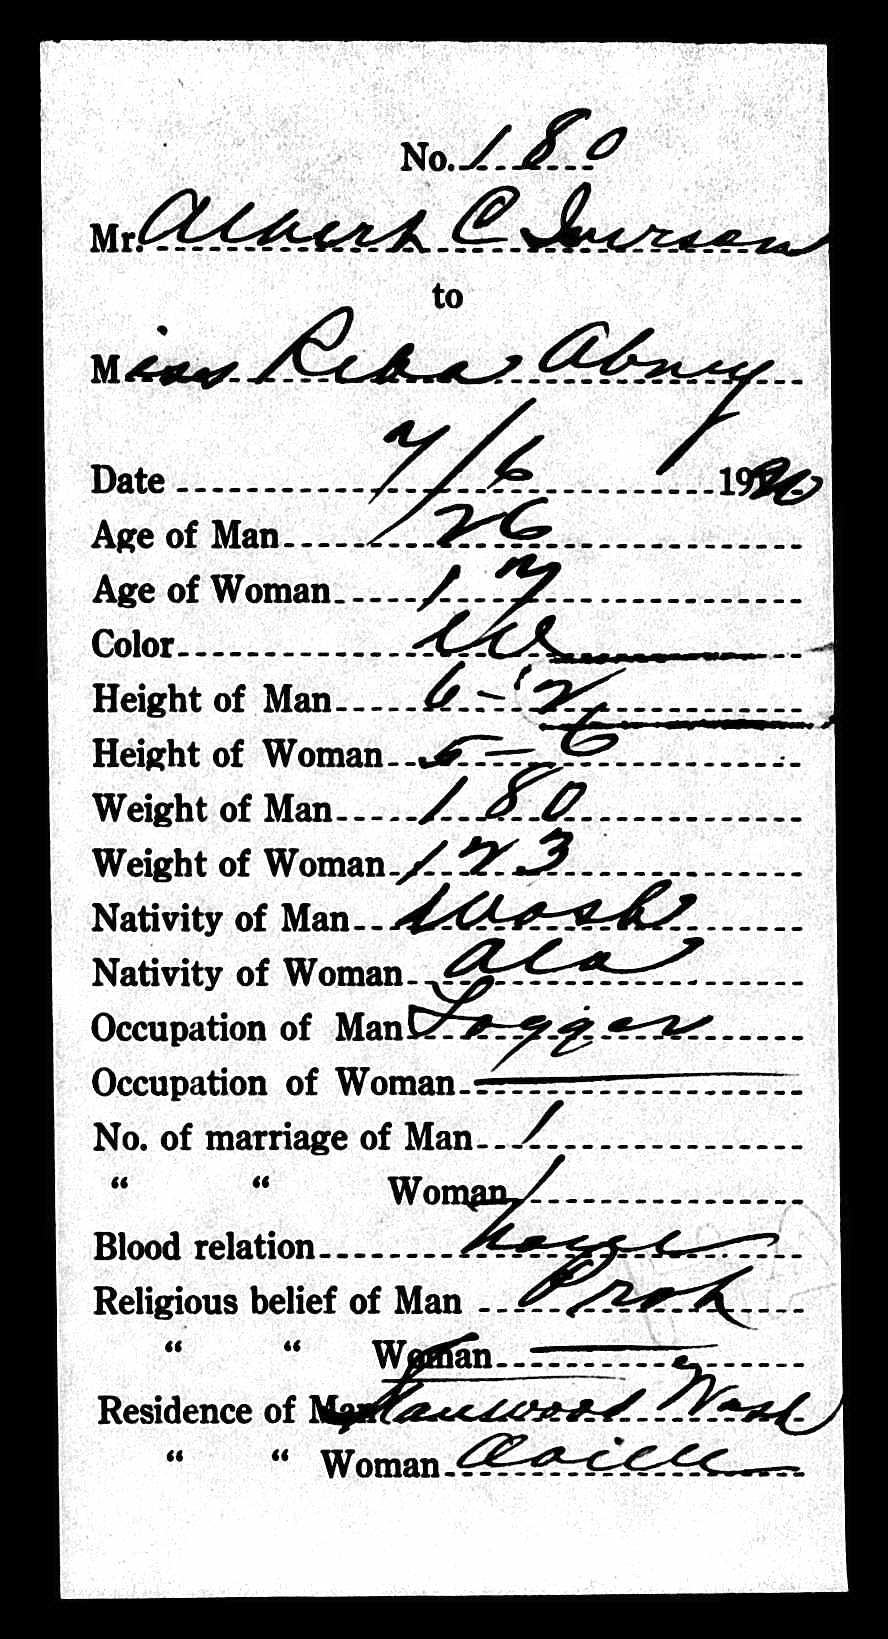 No. 180
Mr. Albert C Iverson
to
Miss Reba Abney
Date 7/6 1920
Age of Man 26
Age of Woman 17
Color W
Height of Man 6-2
Height of Woman 5-6
Weight of Man 180
Weight of Woman 123
Nativity of Man Wash
Nativity of Woman Ala
Occupation of Man Logger
Occupation of Woman —
No. of marriage of Man 1
“ “ Woman 1
Blood relation None
Religious belief of Man Prot
“ “ Woman —
Residence of Man Stanwood Wash
“ “ Woman